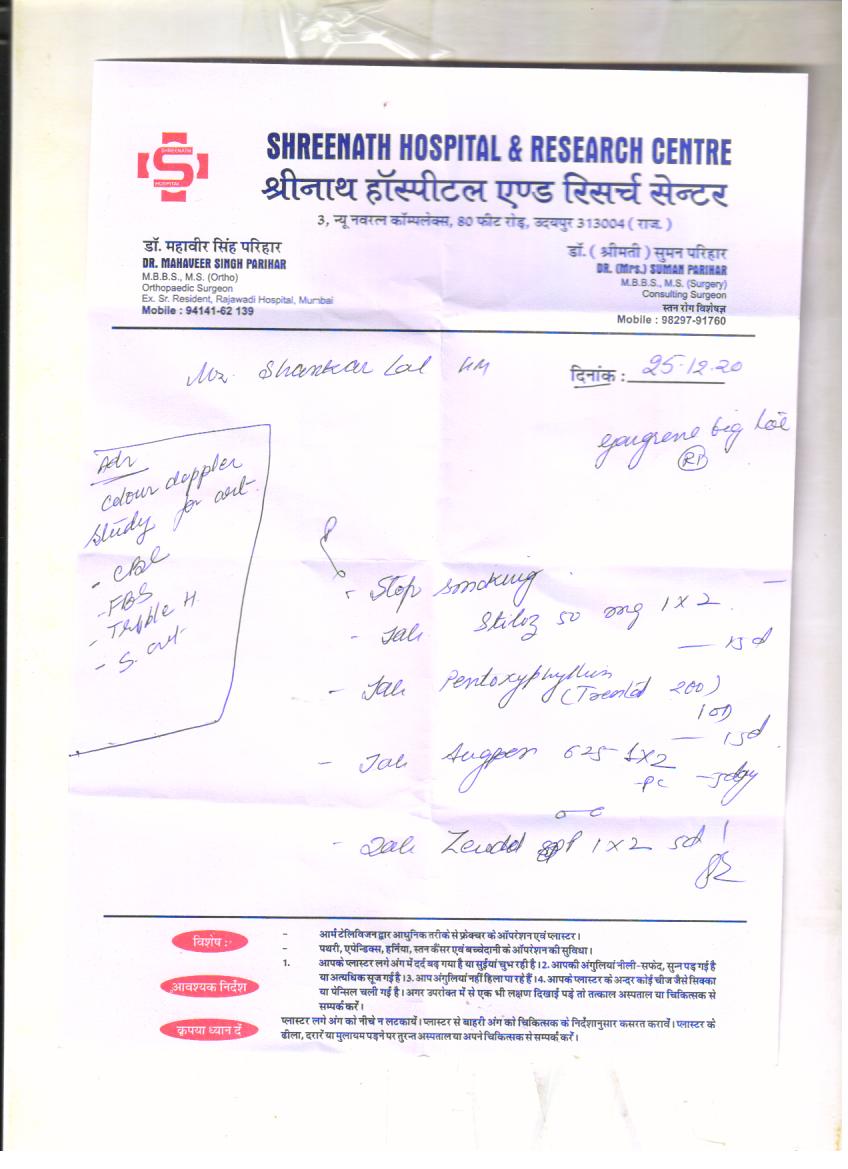 SHREENATH HOSPITAL
SHREENATH HOSPITAL & RESEARCH CENTRE
श्रीनाथ हॉस्पीटल एण्ड रिसर्च सेन्टर
3, न्यू नवरत्न कॉम्पलेक्स, 80 फीट रोड़, उदयपुर 313004 ( राज. )
डॉ. महावीर सिंह परिहार
DR. MAHAVEER SINGH PARIHAR
M.B.B.S., M.S. (Ortho)
Orthopaedic Surgeon
Ex. Sr. Resident, Rajawadi Hospital, Mumbai
Mobile : 94141-62 139
डॉ. ( श्रीमती ) सुमन परिहार
DR. (Mrs.) SUMAN PARIHAR
M.B.B.S., M.S. (Surgery)
Consulting Surgeon
स्तन रोग विशेषज्ञ
Mobile : 98297-91760
Mr. Shankar Lal
दिनांक : 25-12-20
gangrene big toe
Rt
Adv
Colour doppler
study for art.
- CBC
- FBS
- Tripple H
- S.
- Stop smoking
- Tab Stiloz 50 mg 1 x 2
— 15d
- Tab Pentoxyphyllin
(Trental 200)
1 OD
— 15d
- Tab Augpen 625 - 1x2
- pc - 5day
- Tab Zerodol 1 x 2 5d
विशेष :
- आर्म टेलिविजन द्वारा आधुनिक तरीके से फ्रेक्चर के ऑपरेशन एवं प्लास्टर।
- पथरी, एपेन्डिक्स, हर्निया, स्तन कैंसर एवं बच्चेदानी के ऑपरेशन की सुविधा।
आवश्यक निर्देश
1. आपके प्लास्टर लगे अंग में दर्द बढ़ गया है या सुईयां चुभ रही है। 2. आपकी अंगुलियां नीली-सफेद, सुन्न पड़ गई है
या अत्यधिक सूज गई है। 3. आप अंगुलियां नहीं हिला पा रहे हैं। 4. आपके प्लास्टर के अन्दर कोई चीज जैसे सिक्का
या पेन्सिल चली गई है। अगर उपरोक्त में से एक भी लक्षण दिखाई पड़े तो तत्काल अस्पताल या चिकित्सक से
सम्पर्क करें।
कृपया ध्यान दें
प्लास्टर लगे अंग को नीचे न लटकायें। प्लास्टर से बाहरी अंग को चिकित्सक के निर्देशानुसार कसरत करावें। प्लास्टर के
ढीला, दरारें या मुलायम पड़ने पर तुरन्त अस्पताल या अपने चिकित्सक से सम्पर्क करें।